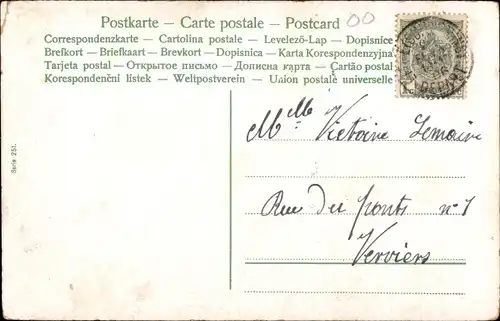 Postkarte – Carte postale – Postcard
Correspondenzkarte – Cartolina postale – Levelező-Lap – Dopisnice
Brefkort – Briefkaart – Brevkort – Dopisnica – Karta Korespondenzyjna
Tarjeta postal – Открытое письмо – Дописна карта – Cartão postal
Korespondenční listek – Weltpostverein – Union postale universelle
00
Mme Victoire Lemaire
Rue du ponts nº 1
Verviers
Serie 251.